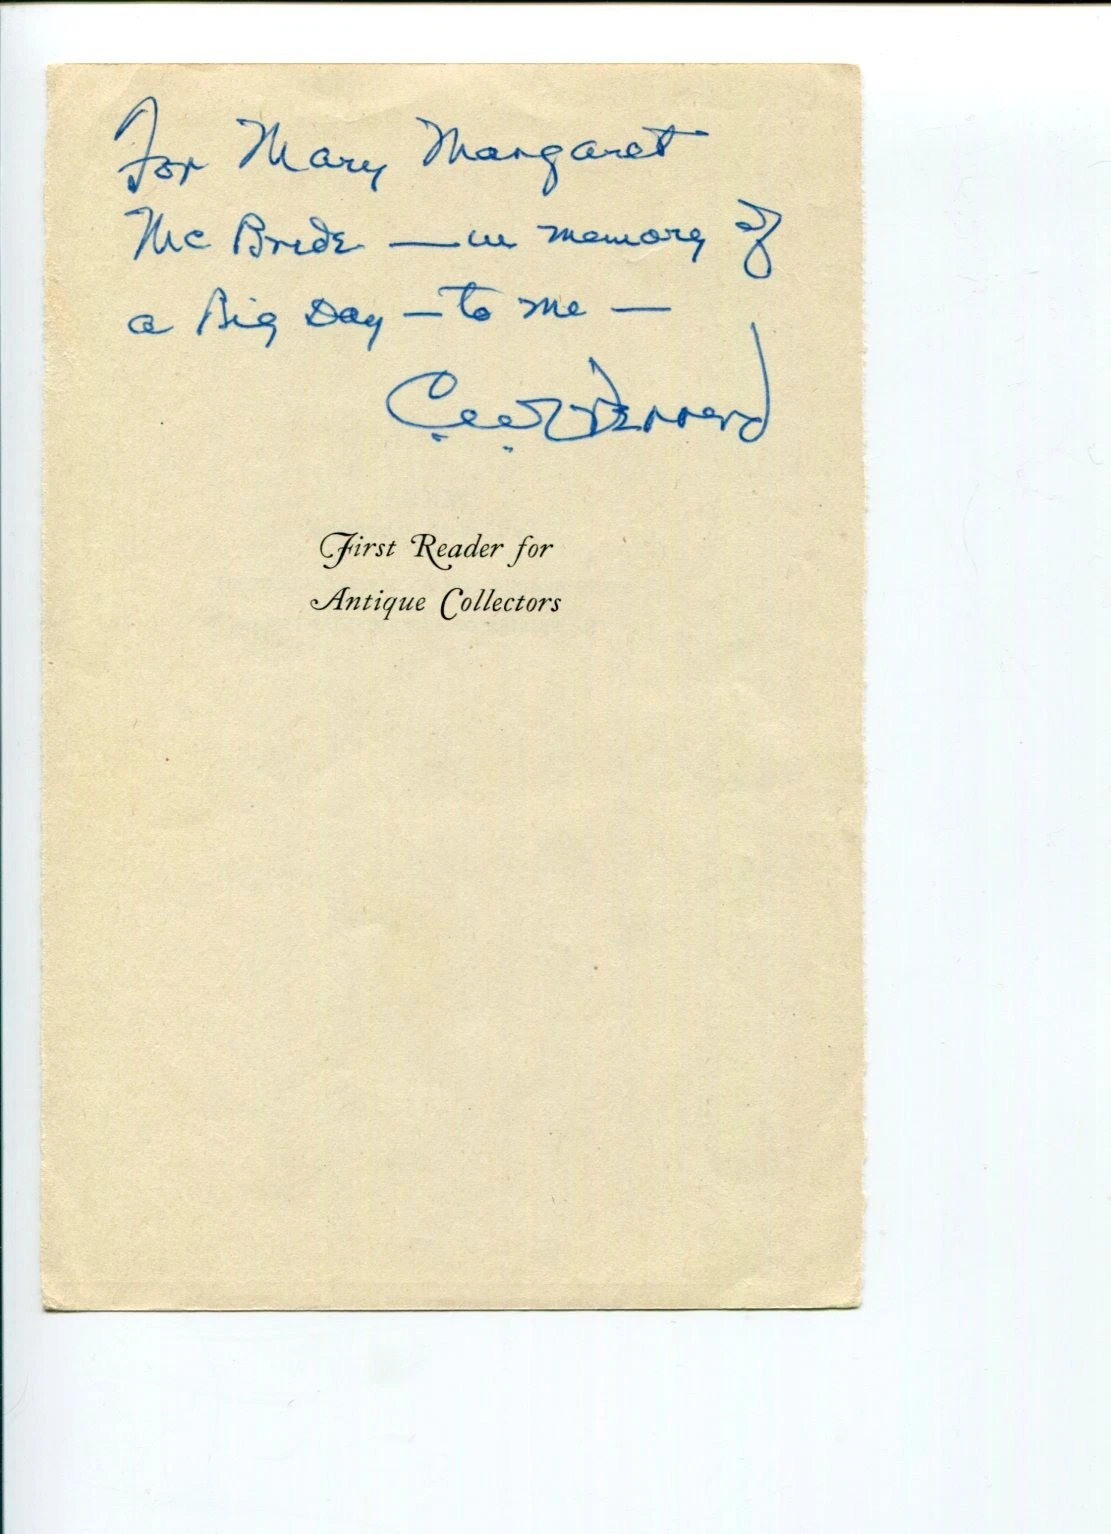 For Mary Margaret
McBride — in memory of
a Big Day — to me —
First Reader for
Antique Collectors